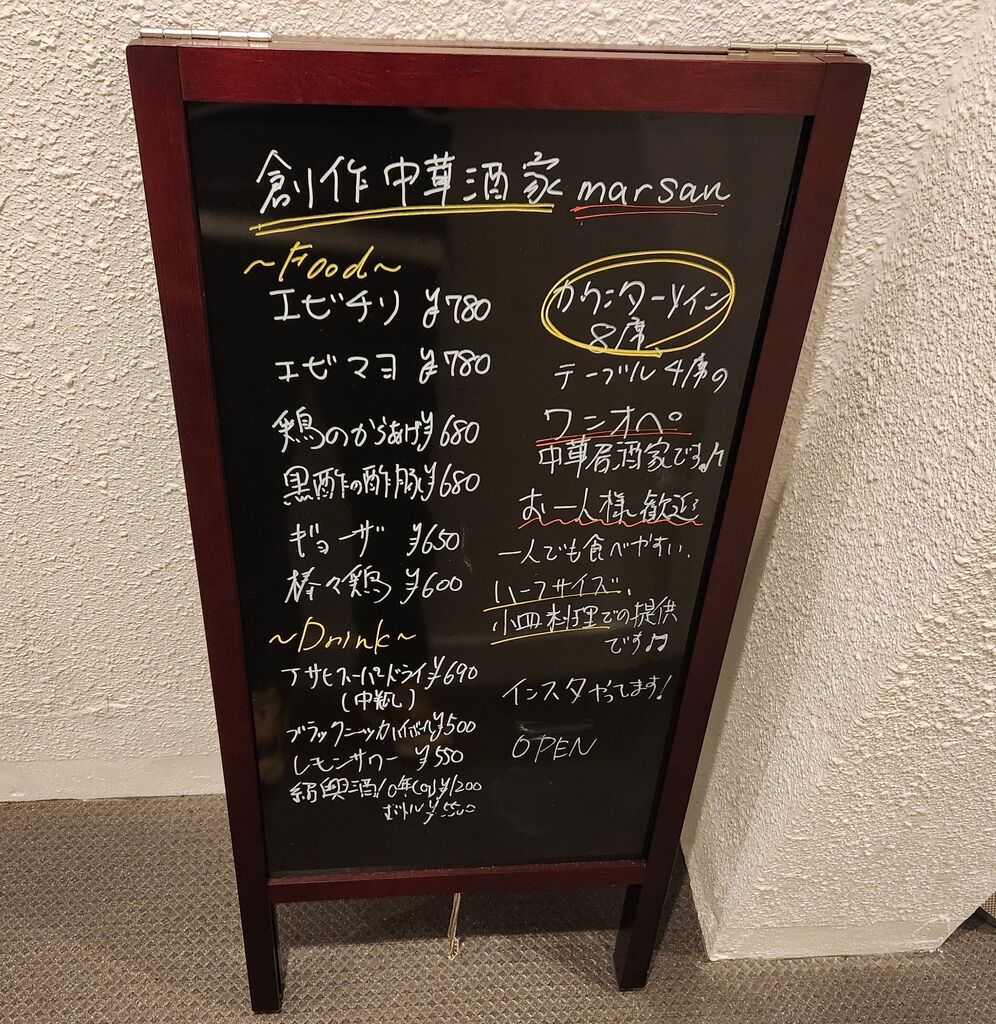 創作中華酒家 marsan
~Food~
エビチリ ¥780
エビマヨ ¥780
鶏のからあげ ¥680
黒酢の酢豚 ¥680
ギョーザ ¥650
棒々鶏 ¥600
~Drink~
アサヒスーパードライ ¥690
(中瓶)
ブラックニッカハイボール ¥500
レモンサワー ¥550
紹興酒10年 ¥1200
ボトル ¥5500
カウンターメイン
8席、
テーブル4席の
ワンオペ。
中華居酒家です♪
お一人様歓迎
一人でも食べやすい、
ハーフサイズ、
小皿料理での提供
です♫
インスタやってます!
OPEN